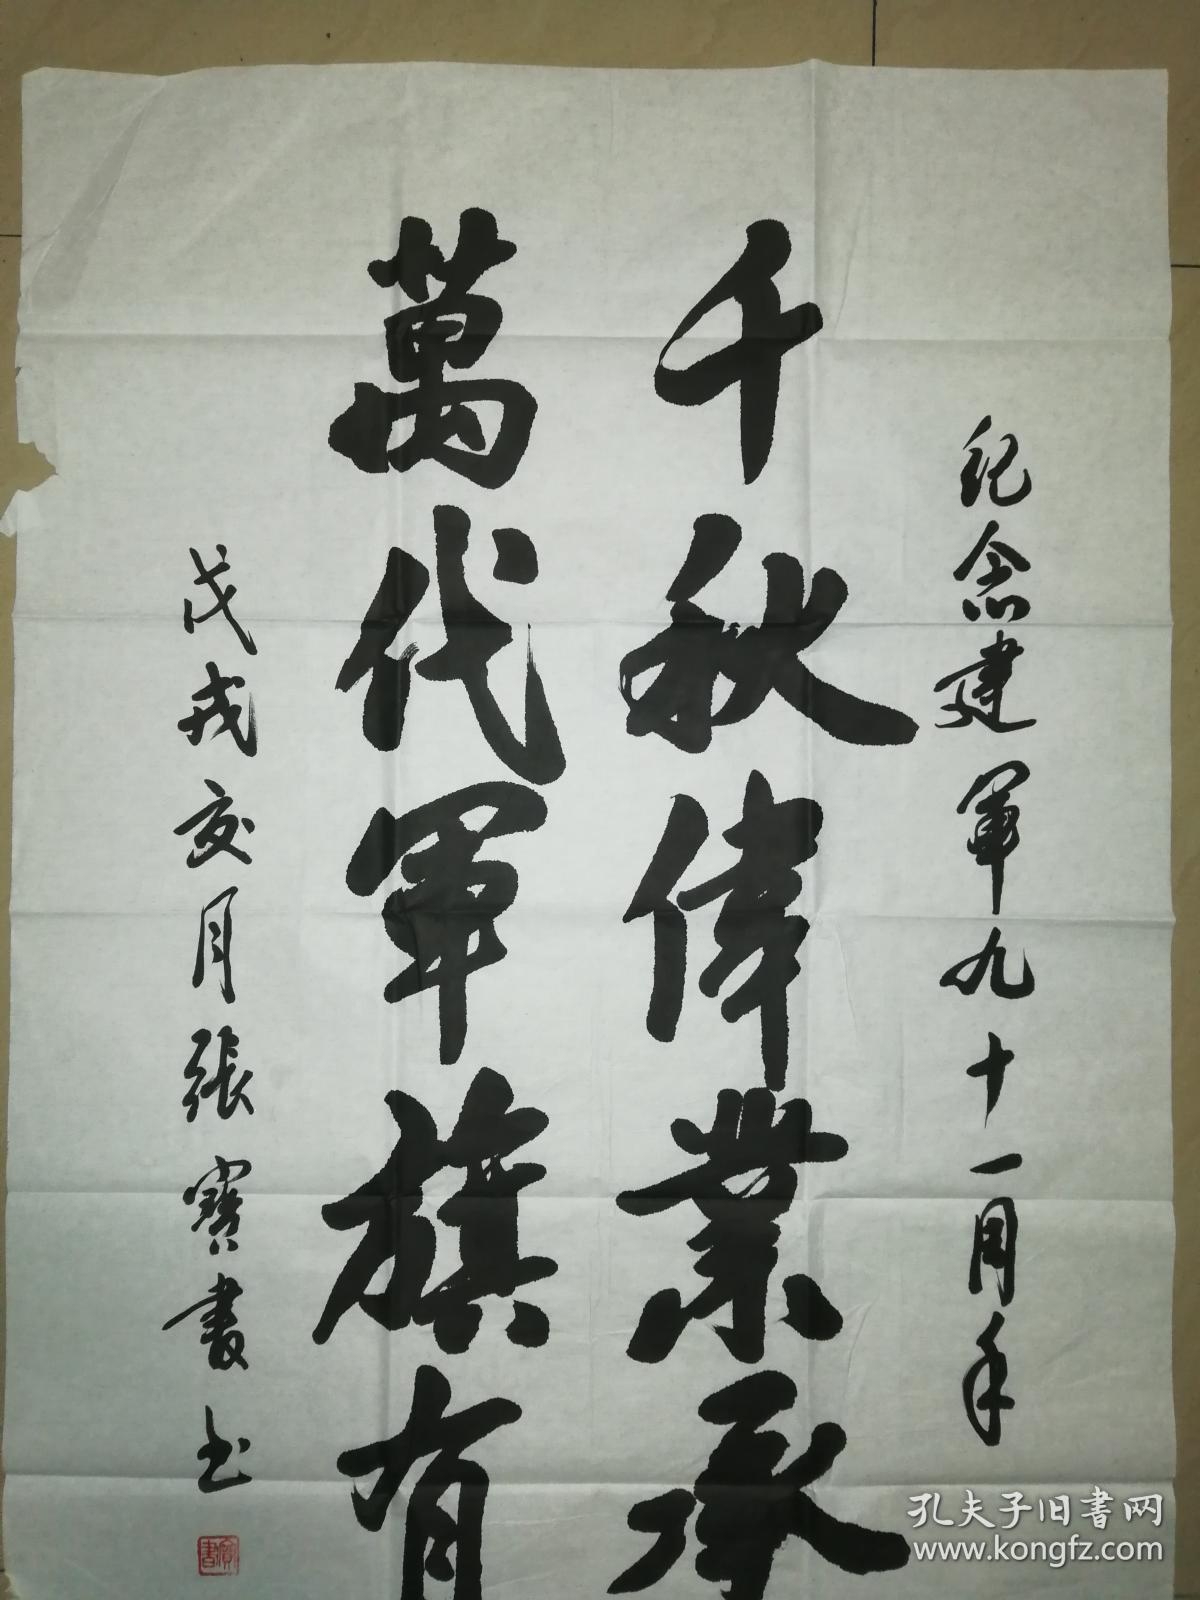 纪念建军九十一周年
千秋偉業承
萬代軍旗有
戊戌夏月張寶書书
寶書
孔夫子旧書网
www.kongfz.com